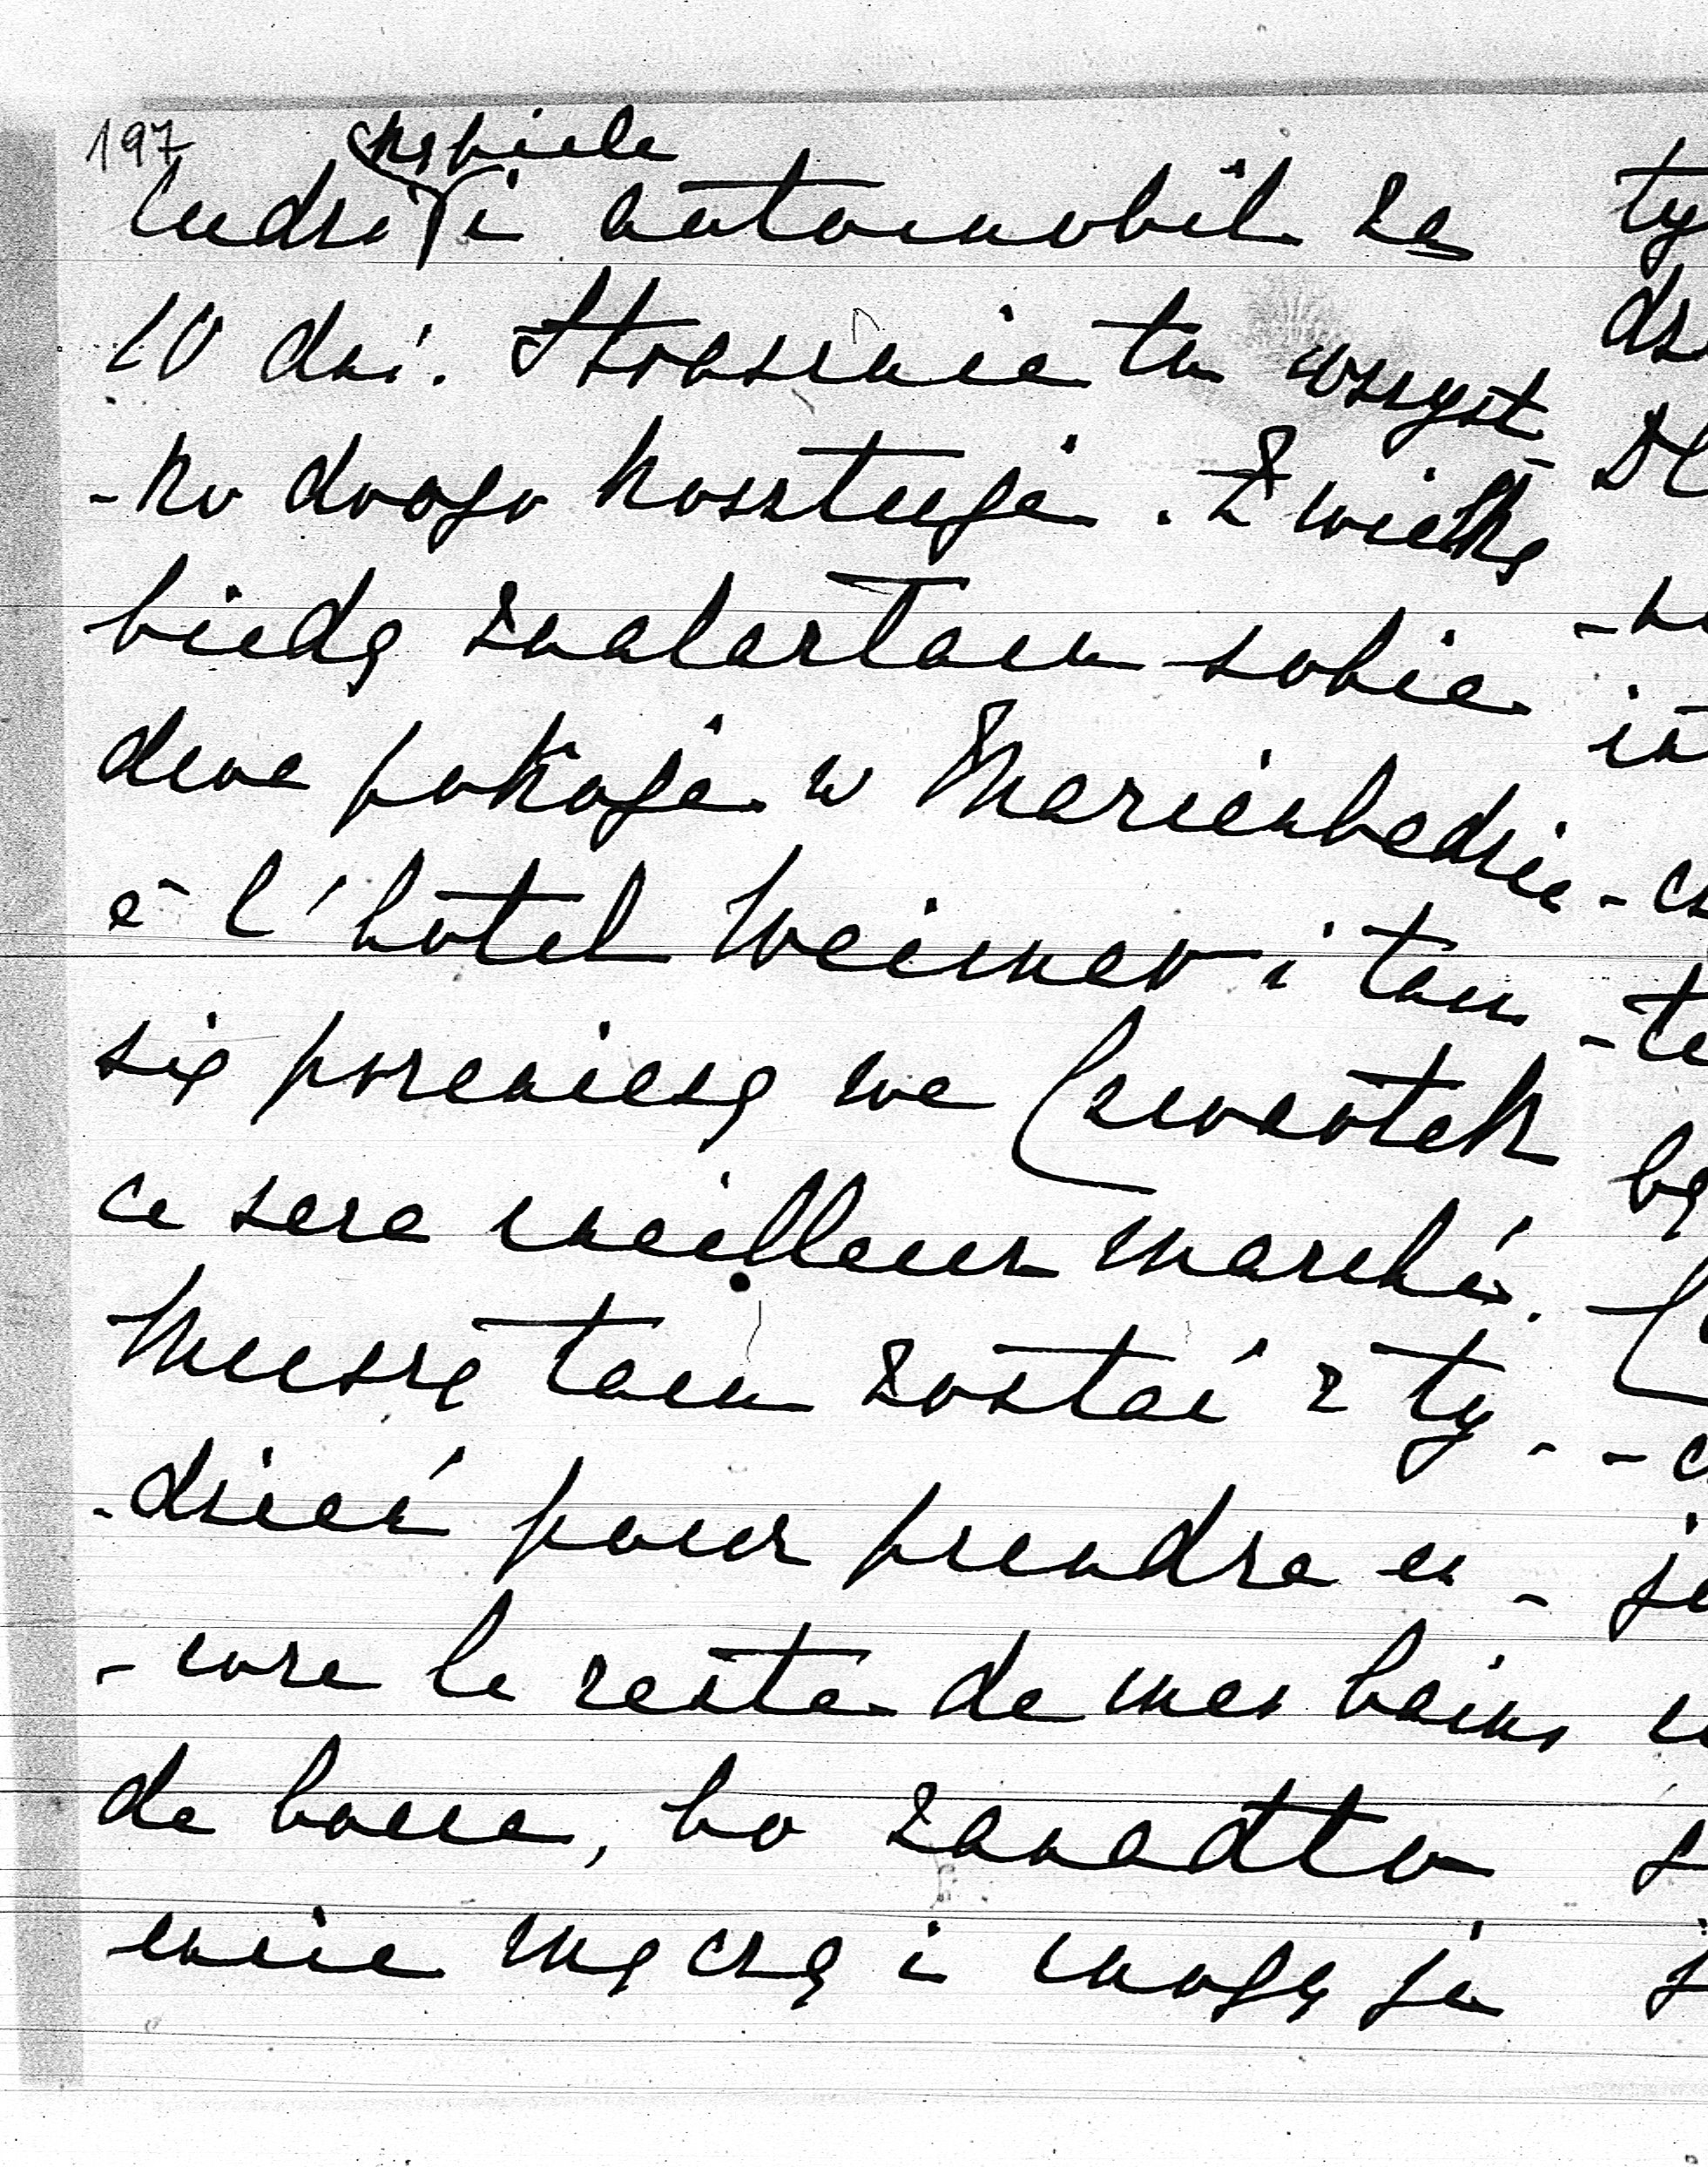 197
kąpiele
ludzi i automobil za
10 dni. Strasznie tu wszyst
-ko drogo kosztuje. Z wielką
biedą znalazłam sobie
dwa pokoje w Marienbadzie
à l'hôtel Weimar i tam
się przeniosę we czwartek
ce sera meilleur marché.
Muszę tam zostać 2 ty-
-dzień pour prendre en-
-core le reste de mes bains
de boue, bo zanadto
mnie męczą i mogę je